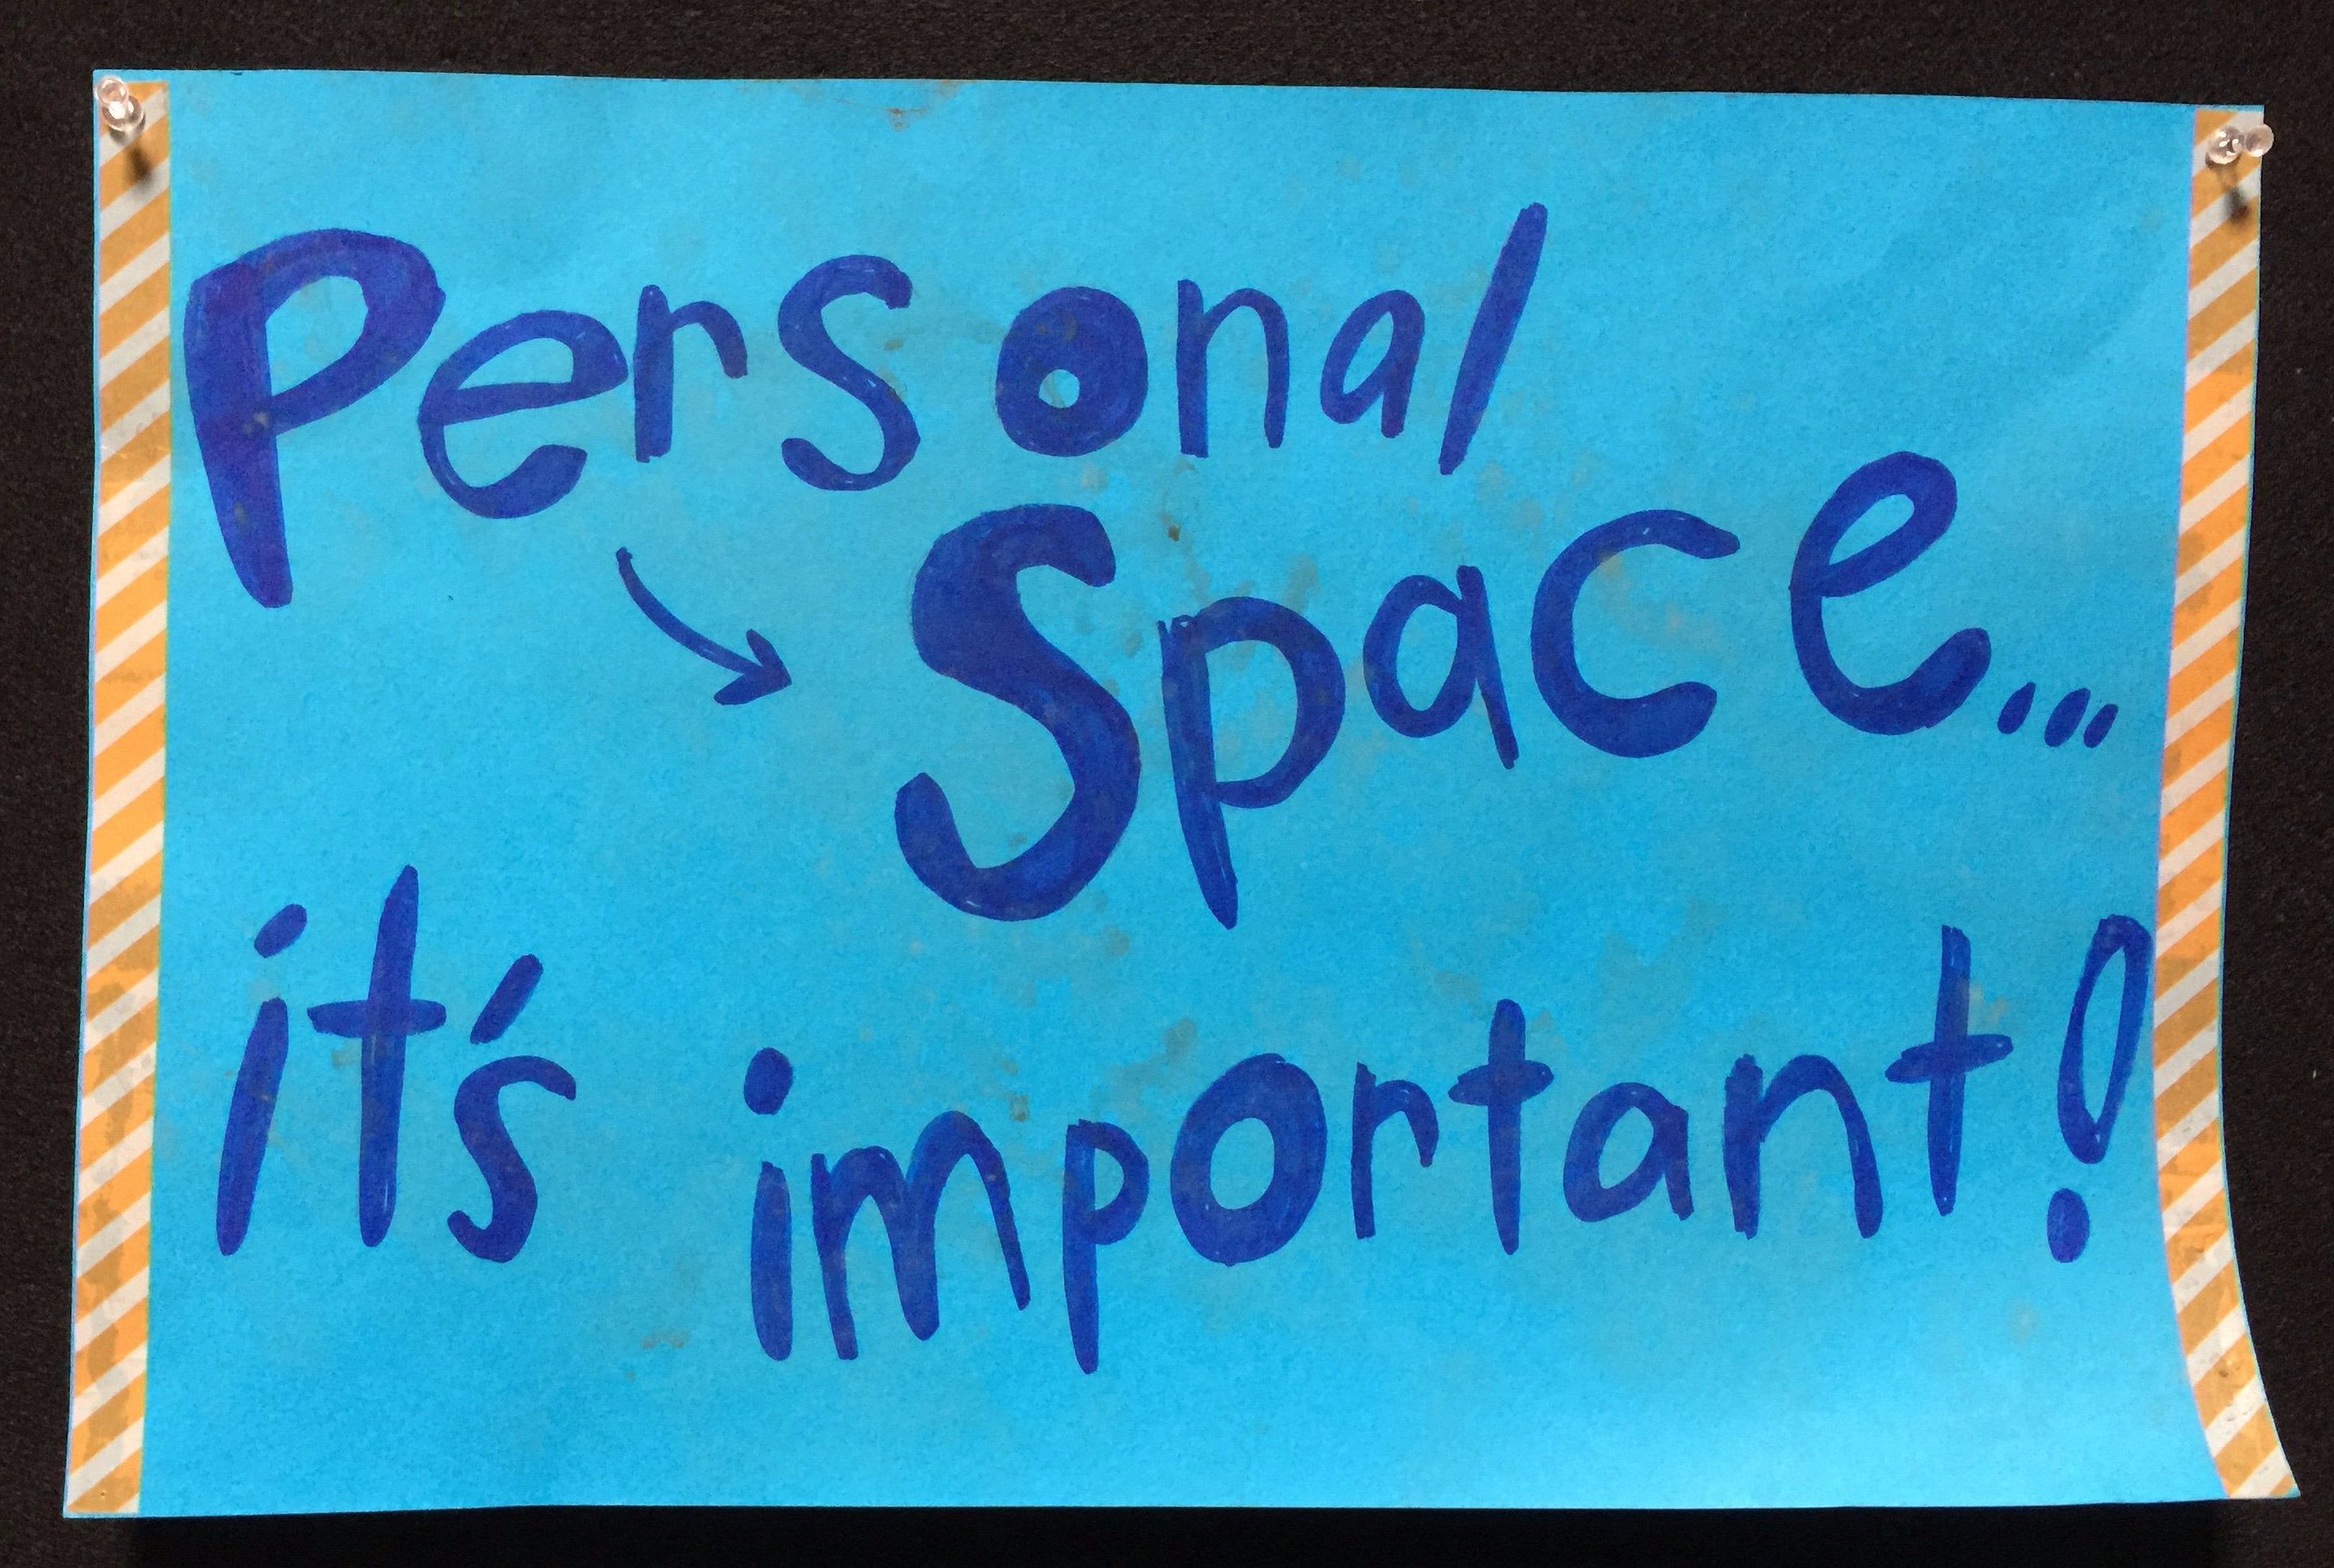 Personal
Space...
it's important!